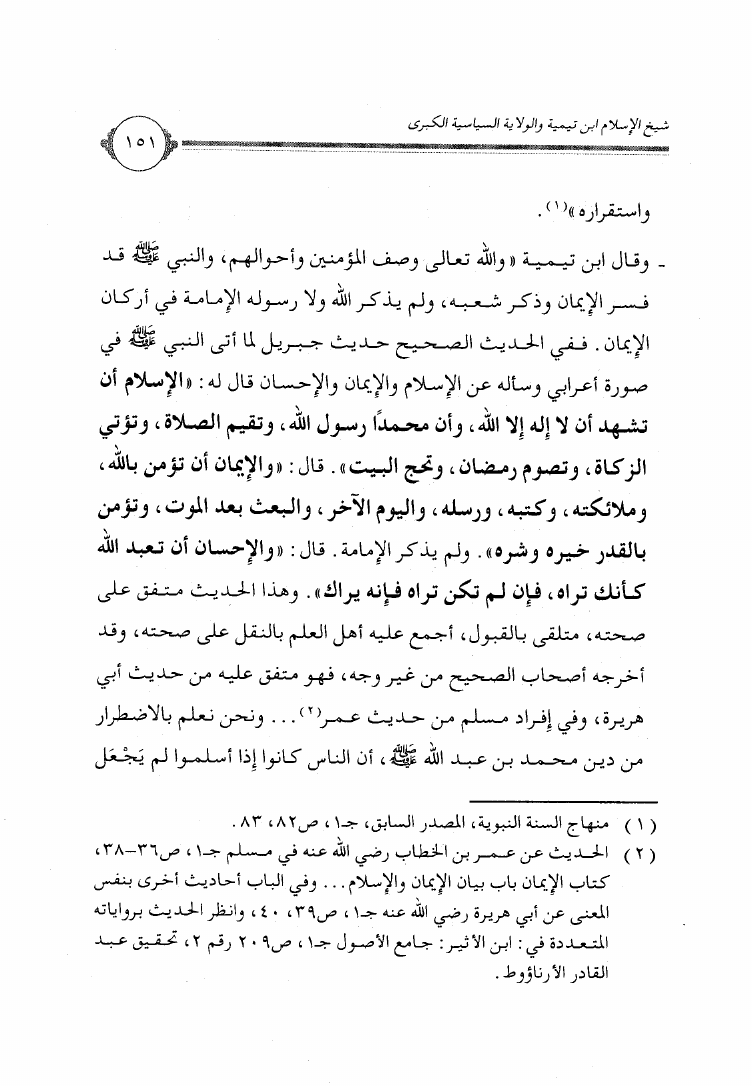 شيخ الإسلام ابن تيمية والولاية السياسية الكبرى
١٥١
واستقراره»(١).
- وقال ابن تيمية «والله تعالى وصف المؤمنين وأحوالهم، والنبي ﷺ قد
فسر الإيمان وذكر شعبه، ولم يذكر الله ولا رسوله الإمامة في أركان
الإيمان. ففي الحديث الصحيح حديث جبريل لما أتى النبي ﷺ في
صورة أعرابي وسأله عن الإسلام والإيمان والإحسان قال له: «الإسلام أن
تشهد أن لا إله إلا الله، وأن محمدًا رسول الله، وتقيم الصلاة، وتؤتي
الزكاة، وتصوم رمضان، وتحج البيت». قال: «والإيمان أن تؤمن بالله،
وملائكته، وكتبه، ورسله، واليوم الآخر، والبعث بعد الموت، وتؤمن
بالقدر خيره وشره». ولم يذكر الإمامة. قال: «والإحسان أن تعبد الله
كأنك تراه، فإن لم تكن تراه فإنه يراك». وهذا الحديث متفق على
صحته، متلقى بالقبول، أجمع عليه أهل العلم بالنقل على صحته، وقد
أخرجه أصحاب الصحيح من غير وجه، فهو متفق عليه من حديث أبي
هريرة، وفي إفراد مسلم من حديث عمر(٢)... ونحن نعلم بالاضطرار
من دين محمد بن عبد الله ﷺ، أن الناس كانوا إذا أسلموا لم يَجْعَل
(١) منهاج السنة النبوية، المصدر السابق، جـ١، ص٨٢، ٨٣.
(٢) الحديث عن عمر بن الخطاب رضي الله عنه في مسلم جـ١، ص٣٦-٣٨،
كتاب الإيمان باب بيان الإيمان والإسلام... وفي الباب أحاديث أخرى بنفس
المعنى عن أبي هريرة رضي الله عنه جـ١، ص٣٩، ٤٠، وانظر الحديث برواياته
المتعددة في: ابن الأثير: جامع الأصول جـ١، ص٢٠٩ رقم ٢، تحقيق عبد
القادر الأرناؤوط.